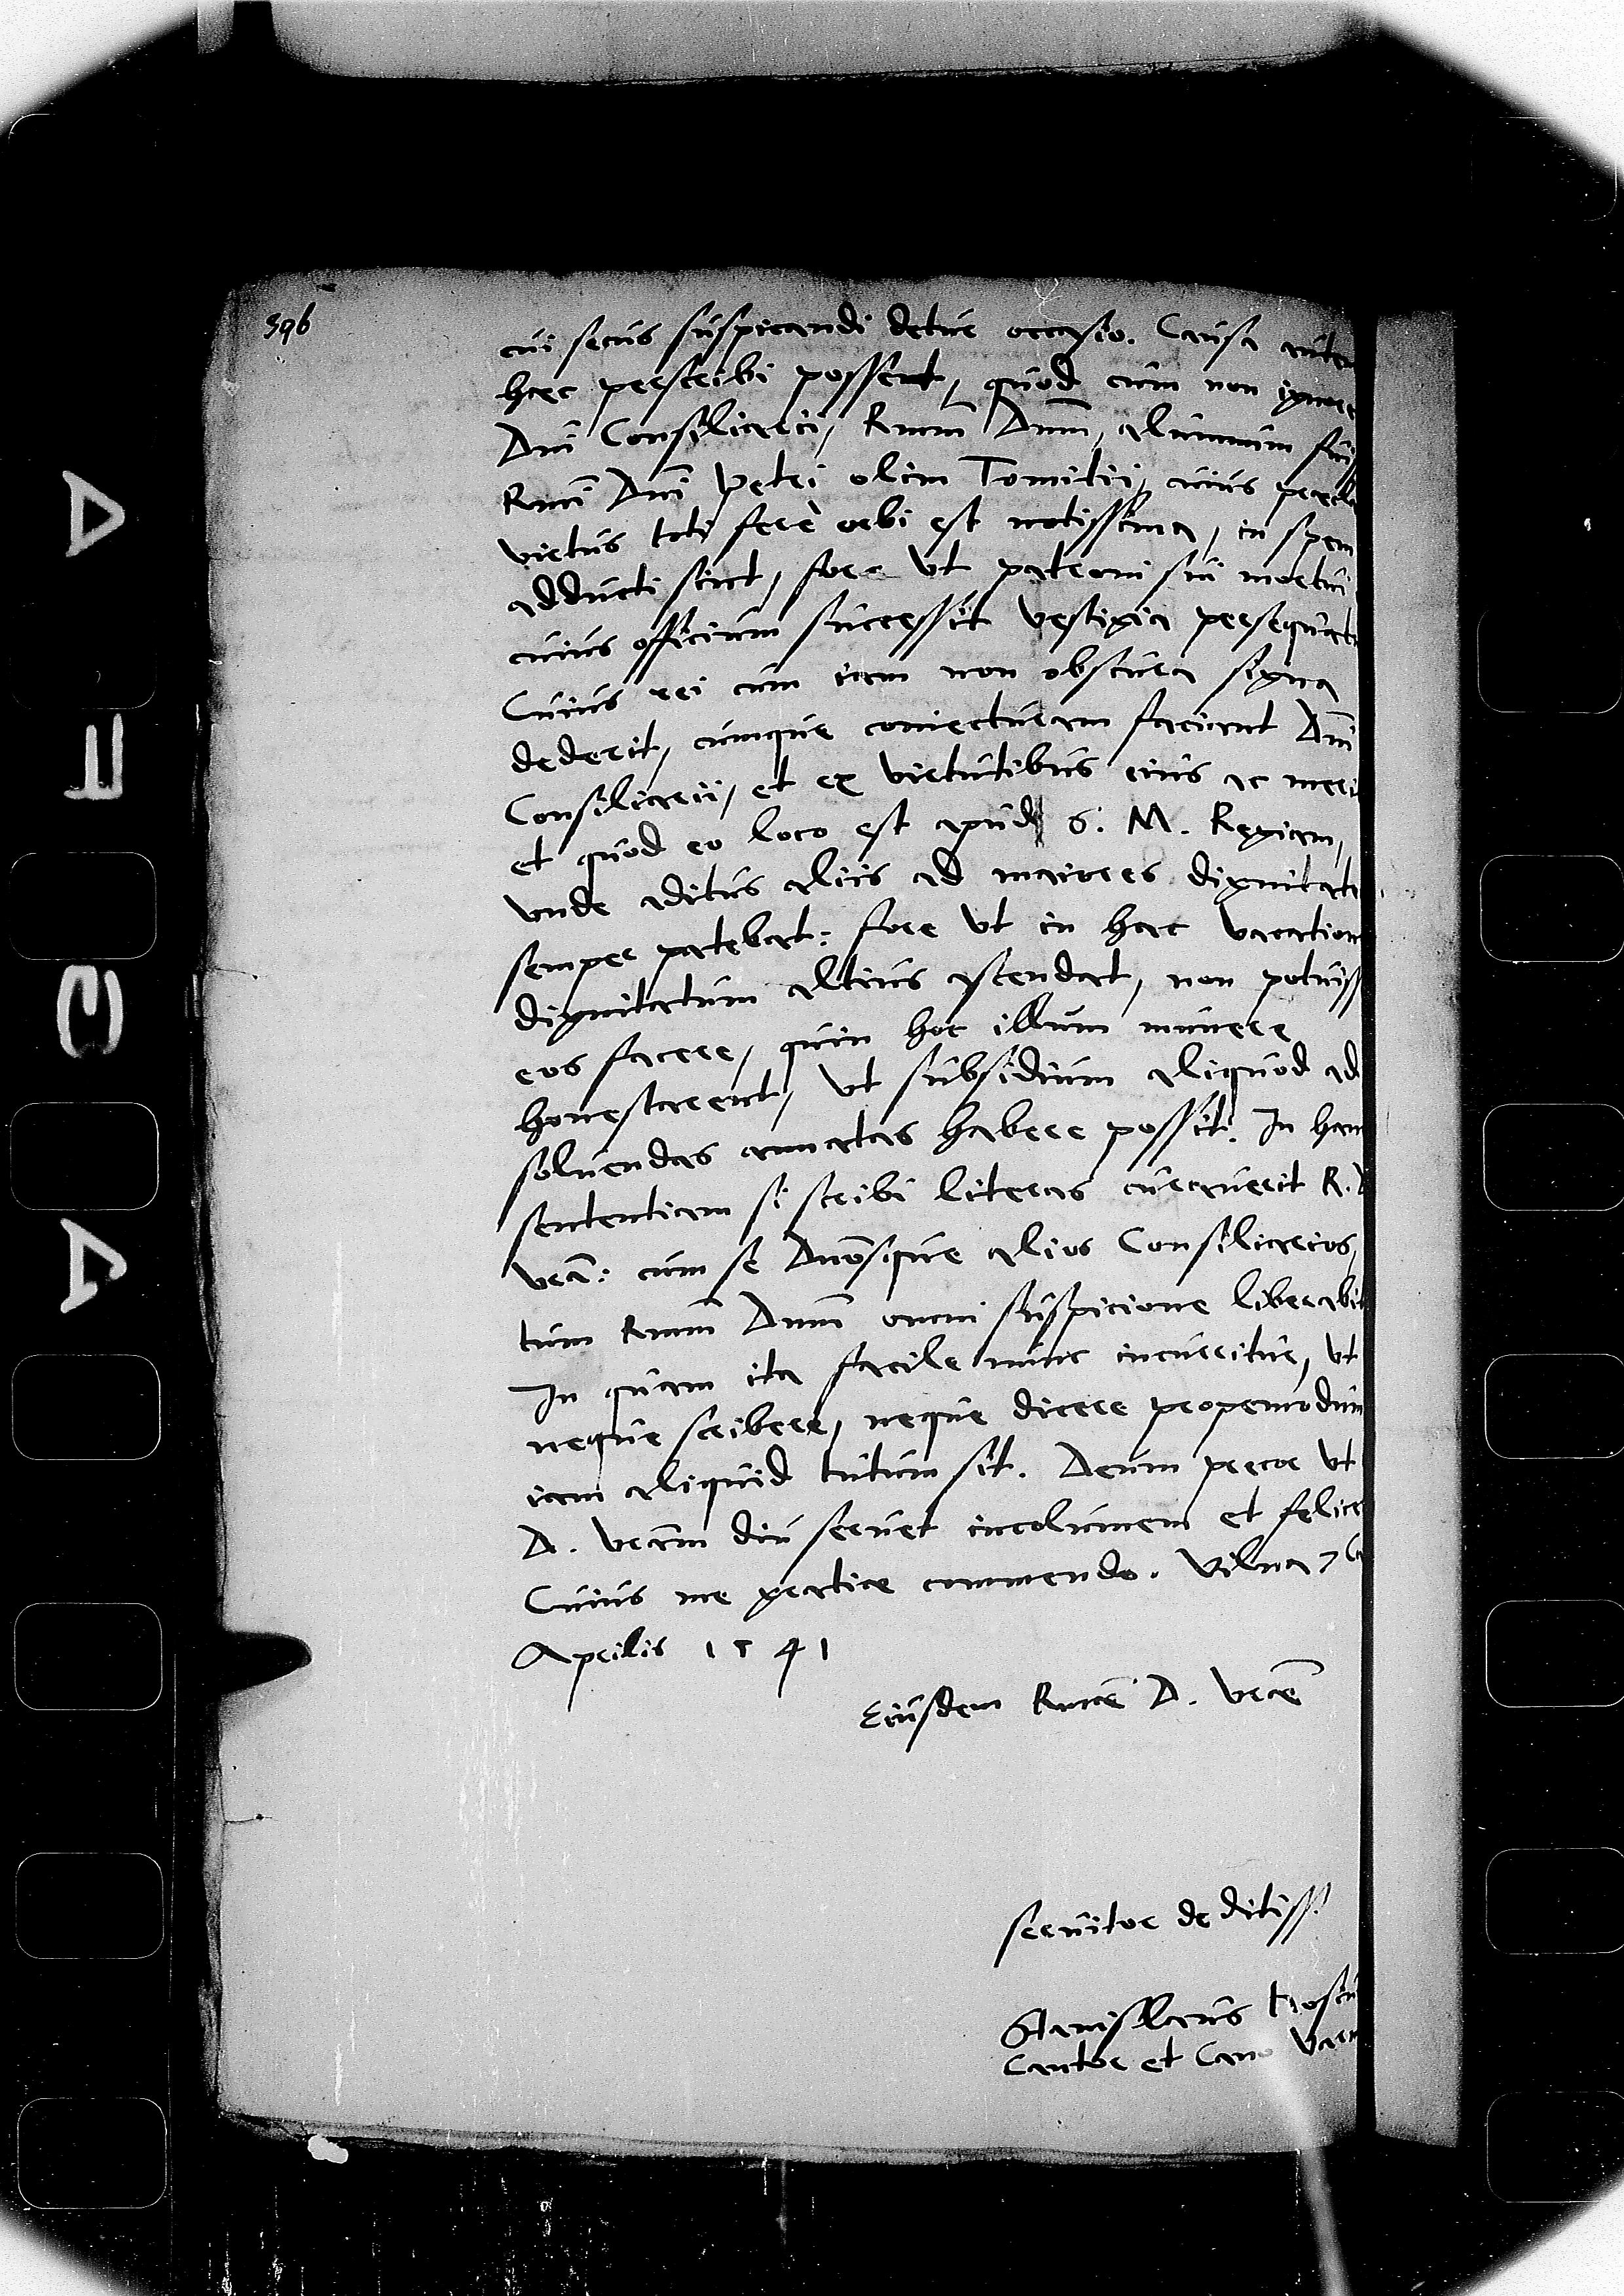 596
cui secus suspicandi detur occasio. Causa autem
haec perscribi possent, quod cum non ignore
Dni Consiliarii, Rmm Dnm, alumnum fuiss
Rmi Dni Petri olim Tomitii, cuius praecla
virtus toti fere orbi est notissima, in spem
adducti sint, fore ut patroni sui mortui
cuius officium successit vestigia persequat
Cuius rei cum iam non obscura signa
dederit, cumque coniecturam faciant Dni
Consiliarii, et ex virtutibus eius ac meri
et quod eo loco est apud S. M. Regiam,
unde aditus aliis ad maiores dignitate
semper patebat: fore ut in hac vacation
dignitatum altius ascendat, non potuiss
eos facere, quin hoc illum munere
honestarent, ut subsidium aliquod ad
solvendas annatas habere possit. In han
sententiam si scribi literas curaverit R. D
vra: cum se Dnosque alios Consiliarios,
tum Rmm Dnm omni suspicione liberabit
In quam ita facile nunc incurritur, ut
neque scribere, neque dicere propemodum
iam aliquid tutum sit. Deum precor ut
D. vram diu servet incolumem et felice
Cuius me gratiae commendo. Vilna 7
Aprilis 1541
Eiusdem Rmae D. Vrae
servitor deditiss.
Stanislaus Hosiu
Cantor et Cano Varm